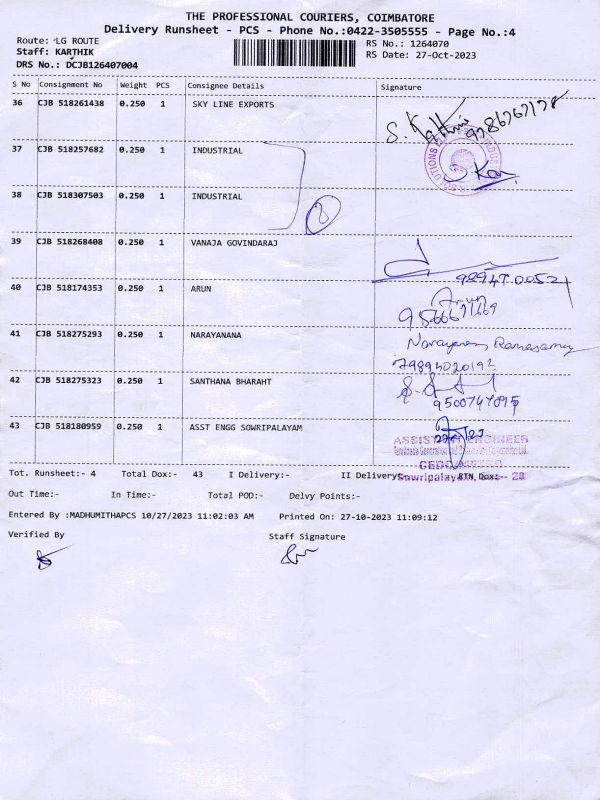 THE PROFESSIONAL COURIERS, COIMBATORE
Delivery Runsheet - PCS - Phone No.:0422-3505555 - Page No.:4
Route: LG ROUTE
RS No.: 1264070
Staff: KARTHIK
RS Date: 27-Oct-2023
DRS No.: DCJB126407004
S No Consignment No Weight PCS Consignee Details Signature
36 CJB 518261438 0.250 1 SKY LINE EXPORTS
37 CJB 518257682 0.250 1 INDUSTRIAL
38 CJB 518307503 0.250 1 INDUSTRIAL
2
39 CJB 518268408 0.250 1 VANAJA GOVINDARAJ
40 CJB 518174353 0.250 1 ARUN
Arun
41 CJB 518275293 0.250 1 NARAYANANA
Narayanan Ramasamy
42 CJB 518275323 0.250 1 SANTHANA BHARAHT
43 CJB 518180959 0.250 1 ASST ENGG SOWRIPALAYAM
ASSISTANT ENGINEER
Tot. Runsheet:- 4 Total Dox:- 43 I Delivery:- II Delivery:- RTN Dox:-
Sowripalayam, 28
Out Time:- In Time:- Total POD:- Delvy Points:-
Entered By :MADHUMITHAPCS 10/27/2023 11:02:03 AM Printed On: 27-10-2023 11:09:12
Verified By Staff Signature